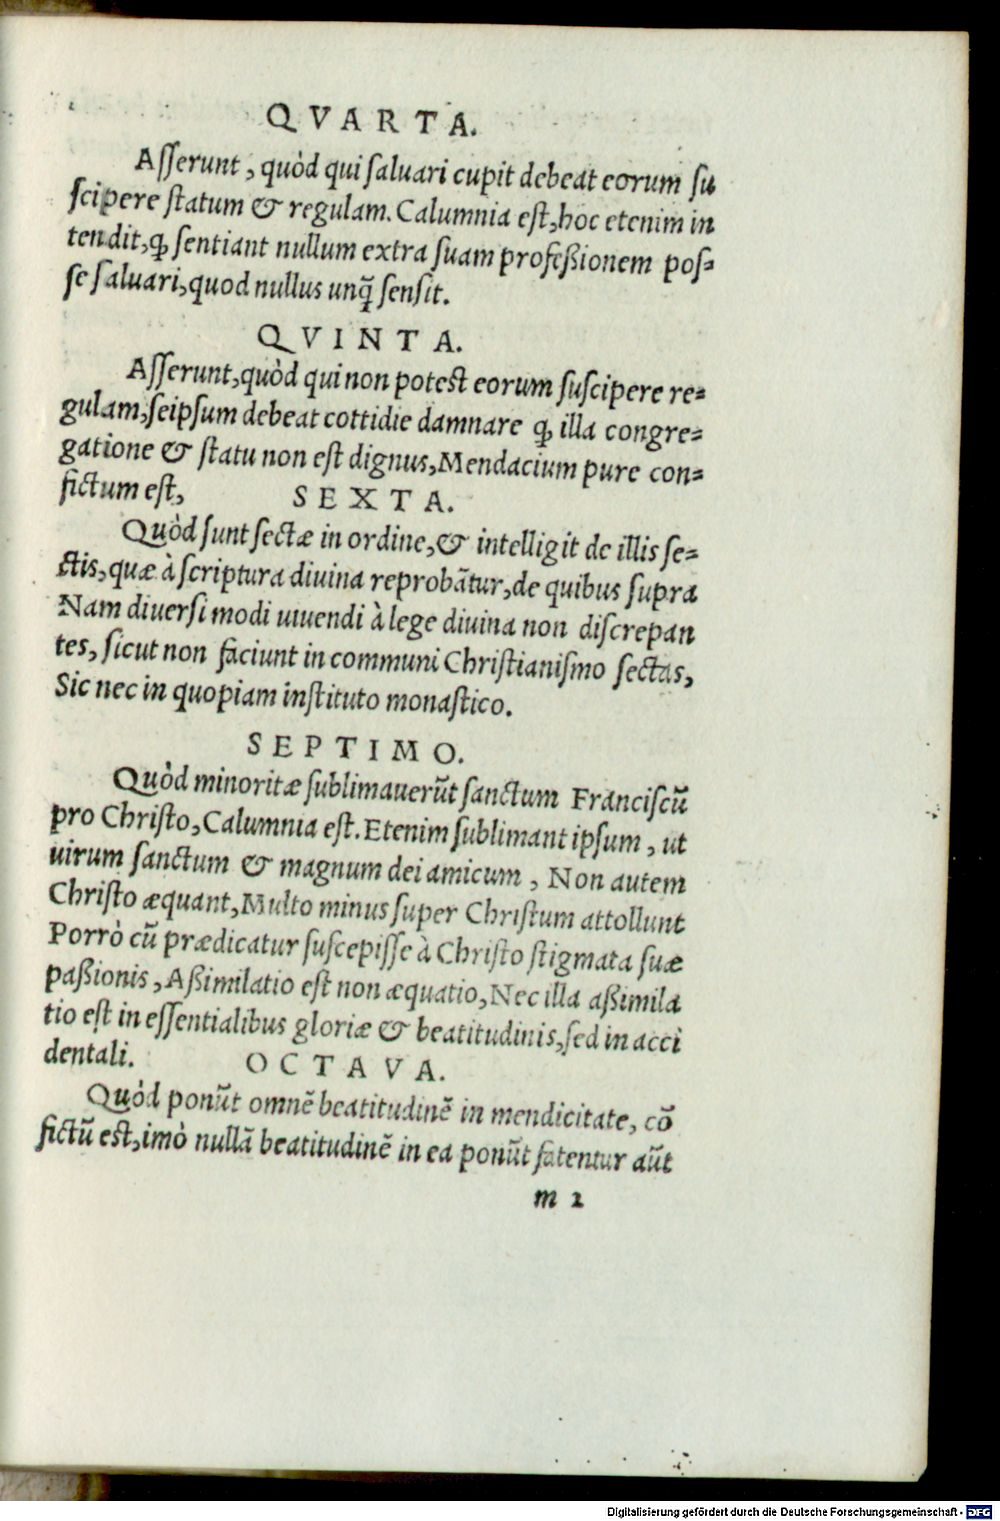 QVARTA.
Aſſerunt, quòd qui ſaluari cupit debeat eorum ſu
ſcipere ſtatum & regulam. Calumnia eſt, hoc etenim in
tendit, ꝙ ſentiant nullum extra ſuam profeßionem poſ=
ſe ſaluari, quod nullus unq̃ ſenſit.
QVINTA.
Aſſerunt, quòd qui non poteſt eorum ſuſcipere re=
gulam, ſeipſum debeat cottidie damnare ꝙ illa congre=
gatione & ſtatu non eſt dignus, Mendacium pure con=
fictum eſt,
SEXTA.
Quòd ſunt ſectæ in ordine, & intelligit de illis ſe=
ctis, quæ à ſcriptura diuina reprobãtur, de quibus ſupra
Nam diuerſi modi uiuendi à lege diuina non diſcrepan
tes, ſicut non faciunt in communi Chriſtianiſmo ſectas,
Sic nec in quopiam inſtituto monaſtico.
SEPTIMO.
Quòd minoritæ ſublimauerũt ſanctum Franciſcũ
pro Chriſto, Calumnia eſt. Etenim ſublimant ipſum, ut
uirum ſanctum & magnum dei amicum, Non autem
Chriſto æquant, Multo minus ſuper Chriſtum attollunt
Porrò cũ prædicatur ſuſcepiſſe à Chriſto ſtigmata ſuæ
paßionis, Aßimilatio eſt non æquatio, Nec illa aßimila
tio eſt in eſſentialibus gloriæ & beatitudinis, ſed in acci
dentali.
OCTAVA.
Quòd ponũt omnẽ beatitudinẽ in mendicitate, cõ
fictũ eſt, imò nullã beatitudinẽ in ea ponũt fatentur aũt
m 2
Digitalisierung gefördert durch die Deutsche Forschungsgemeinschaft - DFG